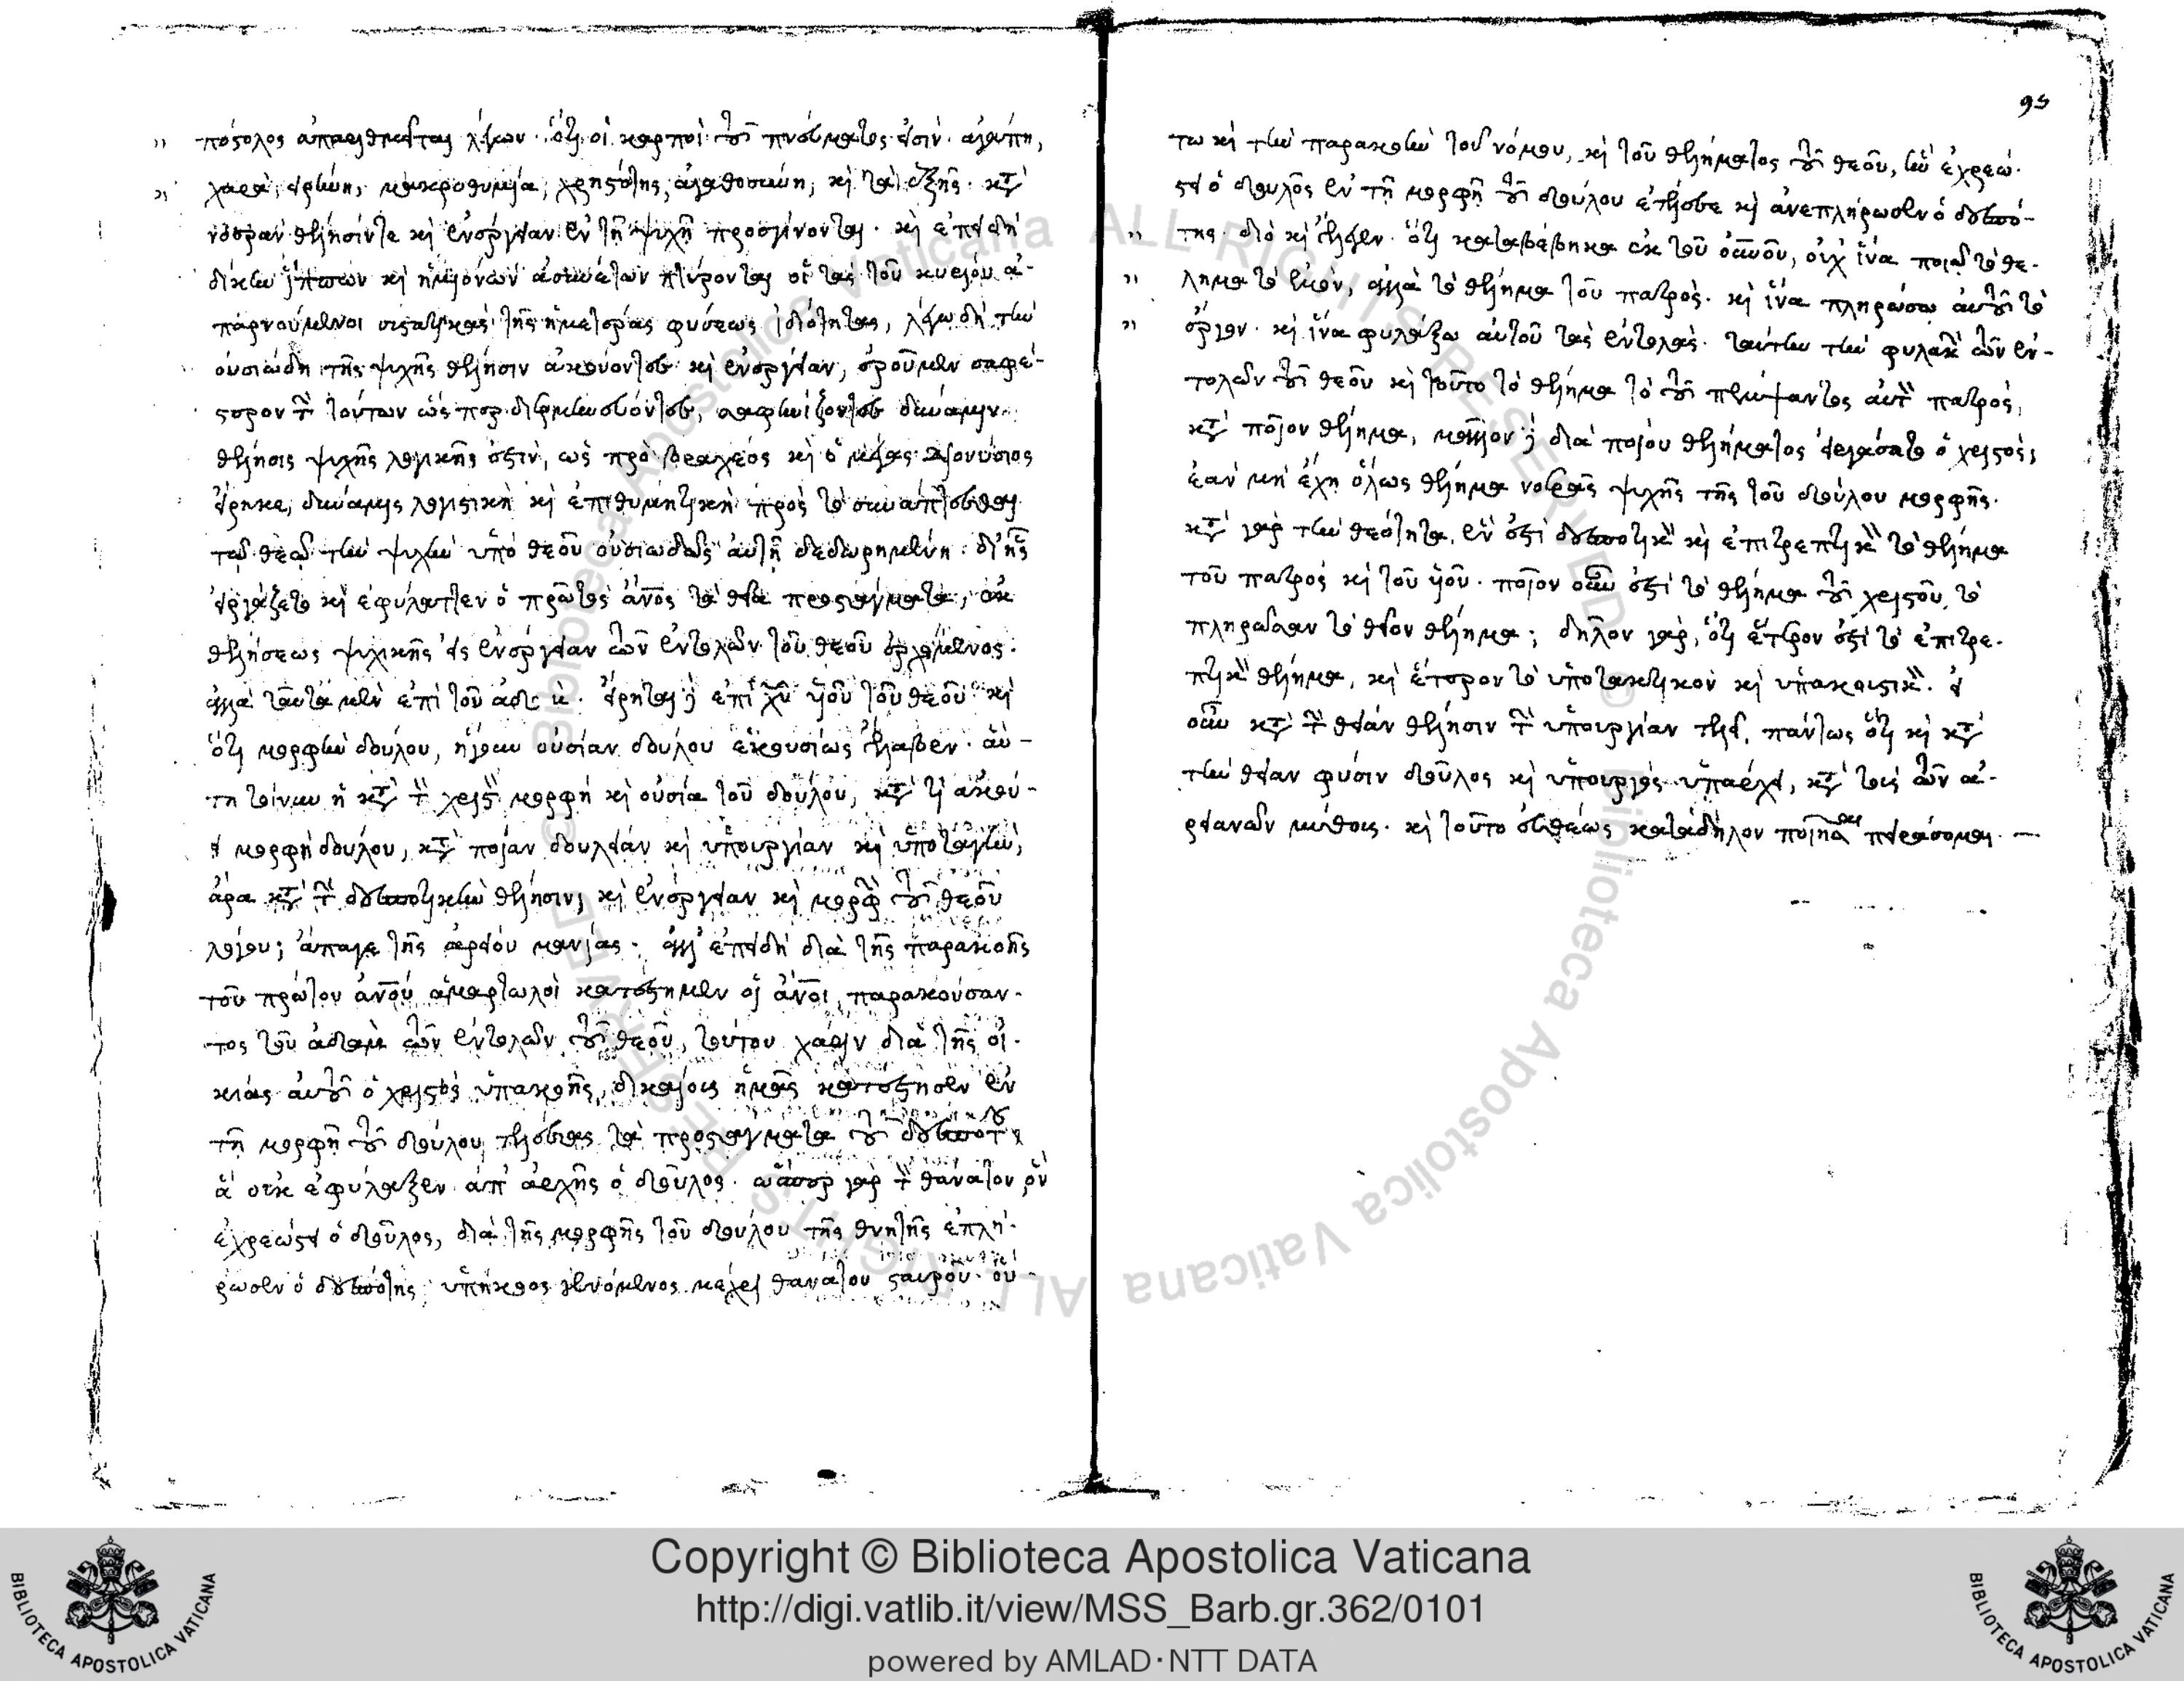 πόστολος ἀπαριθμεῖται λέγων· ὅτι οἱ καρποὶ τοῦ πνεύματός εἰσιν· ἀγάπη,
χαρὰ, εἰρήνη, μακροθυμία, χρηστότης, ἀγαθοσύνη, καὶ τὰ ἑξῆς· κατὰ
νοερὰν θέλησίν τε καὶ ἐνέργειαν ἐν τῇ ψυχῇ προσγίνονται· καὶ ἐπειδὴ
δίκην ἵππων καὶ ἡμιόνων ἀσυνέτων οἱ τὰς τοῦ κυρίου ἀ-
παρνούμενοι συστατικὰς τῆς ἡμετέρας φύσεως ἰδιότητας, λέγω δὴ τὴν
οὐσιώδη τῆς ψυχῆς θέλησιν ἀκούοντες καὶ ἐνέργειαν, ἐροῦμεν σαφέ-
στερον τούτων ὥσπερ διερμηνεύοντες, δύναμιν·
θέλησις ψυχῆς λογικῆς ἐστιν, ὡς πρὸ βραχέος καὶ ὁ μέγας Διονύσιος
εἴρηκε, δύναμις λογιστικὴ καὶ ἐπιθυμητικὴ πρὸς τὸ συνάπτεσθαι
τῷ θεῷ τὴν ψυχὴν ὑπὸ θεοῦ οὐσιωδῶς αὐτῇ δεδωρημένη· δι' ἧς
εἰργάζετο καὶ ἐφύλαττεν ὁ πρῶτος ἄνθρωπος τὰ θεῖα προστάγματα, ἐκ
θελήσεως ψυχικῆς εἰς ἐνέργειαν τῶν ἐντολῶν τοῦ θεοῦ ἐρχόμενος·
ἀλλὰ ταῦτα μὲν ἐπὶ τοῦ ἀδάμ· εἴρηται δὲ ἐπὶ χριστοῦ υἱοῦ τοῦ θεοῦ καὶ
ὅτι μορφὴν δούλου, ἤγουν οὐσίαν δούλου ἑκουσίως ἔλαβεν· αὕ-
τη τοίνυν ἡ κατὰ τὸν χριστὸν μορφὴ καὶ οὐσία τοῦ δούλου, κατὰ τί ἀκού-
ει μορφὴ δούλου, κατὰ ποίαν δουλείαν καὶ ὑπουργίαν καὶ ὑποταγὴν;
ἆρα κατὰ τὴν δεσποτικὴν θέλησιν, καὶ ἐνέργειαν καὶ μορφὴν τοῦ θεοῦ
λόγου; ἄπαγε τῆς ἀρείου μανίας· ἀλλ' ἐπειδὴ διὰ τῆς παρακοῆς
τοῦ πρώτου ἀνθρώπου ἁμαρτωλοὶ κατέστημεν οἱ ἄνθρωποι, παρακούσαν-
τος τοῦ ἀδὰμ τῶν ἐντολῶν τοῦ θεοῦ, τούτου χάριν διὰ τῆς οἰ-
κείας αὐτοῦ ὁ χριστὸς ὑπακοῆς, δικαίους ἡμᾶς κατέστησεν ἐν
τῇ μορφῇ τοῦ δούλου τελέσας τὰ προστάγματα τοῦ δεσπότου
ἃ οὐκ ἐφύλαξεν ἀπ' ἀρχῆς ὁ δοῦλος· ὥσπερ γὰρ τὸν θάνατον ὃν
ἐχρεώστει ὁ δοῦλος, διὰ τῆς μορφῆς τοῦ δούλου τῆς θνητῆς ἐπλή-
ρωσεν ὁ δεσπότης, ὑπήκοος γενόμενος μέχρι θανάτου σταυροῦ· οὕ-
95
τω καὶ τὴν παρακοὴν τοῦ νόμου, καὶ τοῦ θελήματος τοῦ θεοῦ, ἣν ἐχρεώ-
στει ὁ δοῦλος ἐν τῇ μορφῇ τοῦ δούλου ἐτέλεσε καὶ ἀνεπλήρωσεν ὁ δεσπό-
της· διὸ καὶ ἔλεγεν· ὅτι καταβέβηκα ἐκ τοῦ οὐρανοῦ, οὐχ ἵνα ποιῶ τὸ θέ-
λημα τὸ ἐμὸν, ἀλλὰ τὸ θέλημα τοῦ πατρός· καὶ ἵνα πληρώσω αὐτοῦ τὸ
ἔργον· καὶ ἵνα φυλάξω αὐτοῦ τὰς ἐντολάς· ταύτην τὴν φυλακὴν τῶν ἐν-
τολῶν τοῦ θεοῦ καὶ τοῦτο τὸ θέλημα τὸ τοῦ πέμψαντος αὐτὸν πατρός,
κατὰ ποῖον θέλημα, μᾶλλον δὲ διὰ ποίου θελήματος εἰργάσατο ὁ χριστός;
ἐὰν μὴ ἔχῃ ὅλως θέλημα νοερᾶς ψυχῆς τῆς τοῦ δούλου μορφῆς·
κατὰ γὰρ τὴν θεότητα, ἕν ἐστι δεσποτικὸν καὶ ἐπιτρεπτικὸν τὸ θέλημα
τοῦ πατρὸς καὶ τοῦ υἱοῦ· ποῖον οὖν ἐστὶ τὸ θέλημα τοῦ χριστοῦ, τὸ
πληρῶσαν τὸ θεῖον θέλημα; δῆλον γὰρ, ὅτι ἕτερον ἐστὶ τὸ ἐπιτρε-
πτικὸν θέλημα, καὶ ἕτερον τὸ ὑποτακτικὸν καὶ ὑπακουστικόν· εἰ
οὖν κατὰ τὴν θείαν θέλησιν τὴν ὑπουργίαν τελεῖ, πάντως ὅτι καὶ κατὰ
τὴν θείαν φύσιν δοῦλος καὶ ὑπουργὸς ὑπάρχει, κατὰ τοὺς τῶν ἀ-
ρειανῶν μύθους· καὶ τοῦτο εὐθέως κατάδηλον ποιῆσαι πειράσομαι.
Copyright © Biblioteca Apostolica Vaticana
http://digi.vatlib.it/view/MSS_Barb.gr.362/0101
powered by AMLAD·NTT DATA